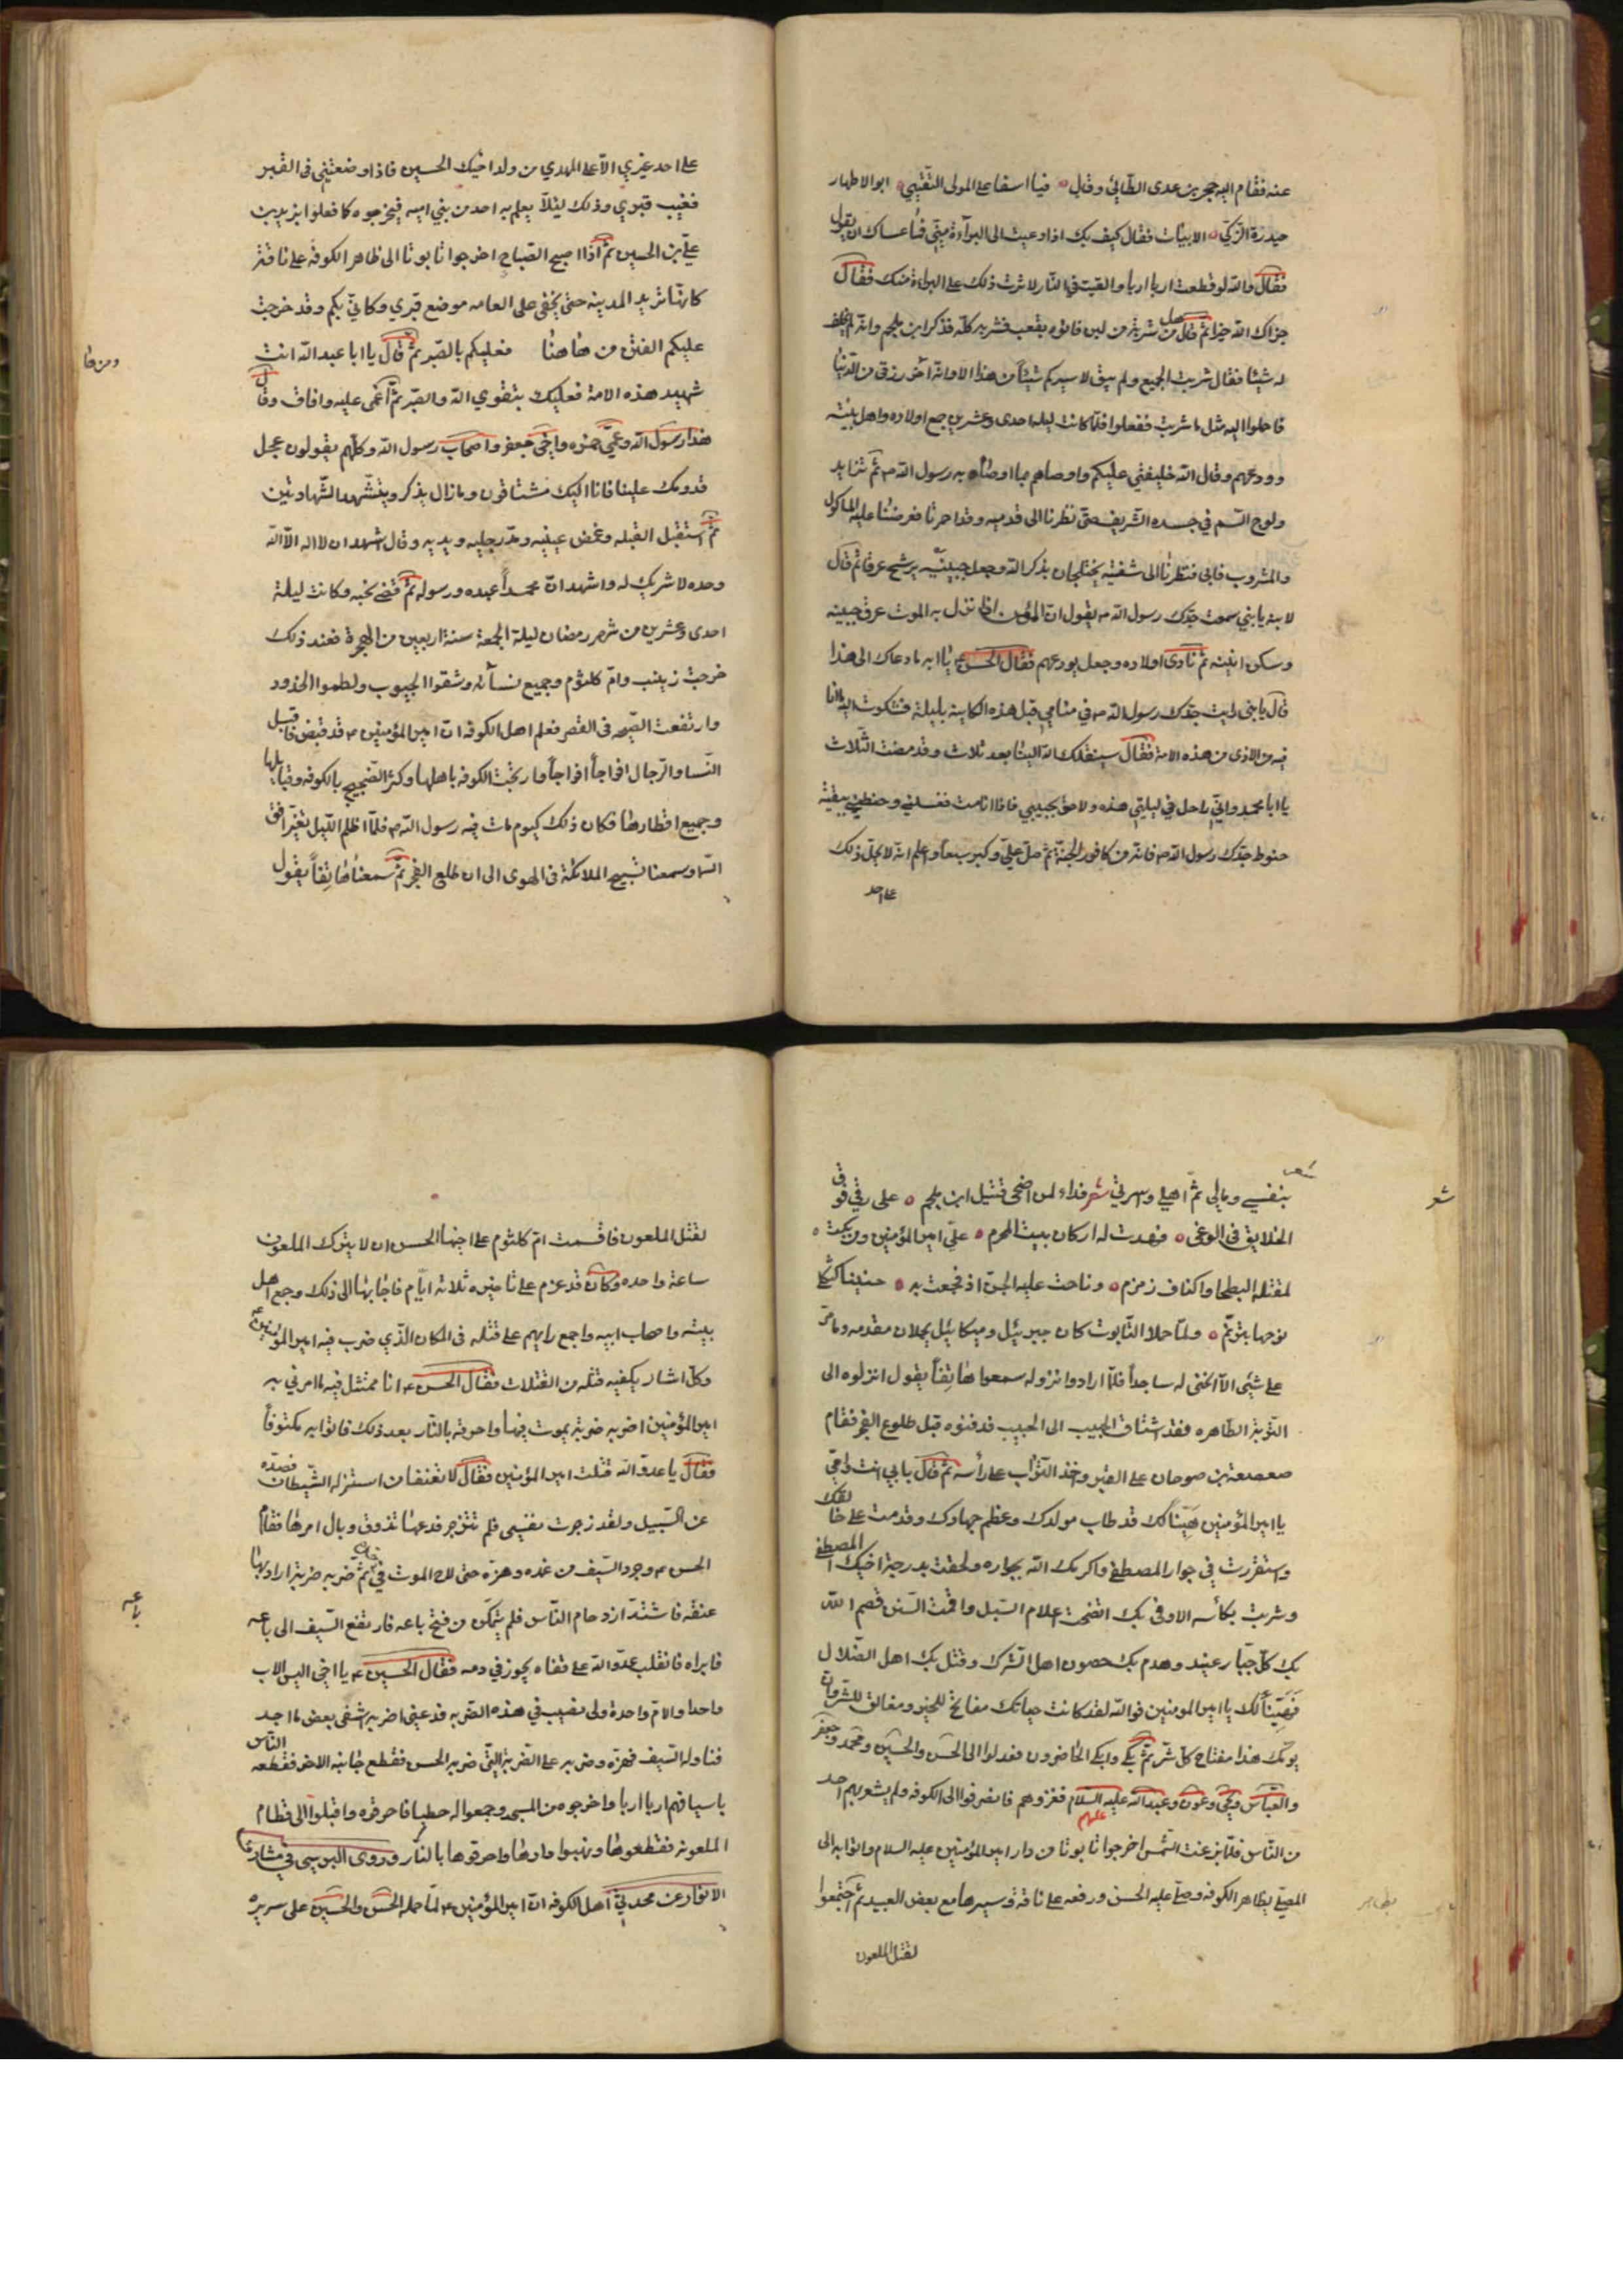 عنه فقام اليه حجر بن عدى الطائي وقال فيا اسفا على المولى التقيي ابو الاطهار
حيدرة الزكيّ الابيات فقال كيف بك اذا دعيت الى البرآءة منّي فما عساك ان يقول
فقال والله لو قطعت اربا اربا والقيت في النار لاثرت ذلك على البراءة منك فقال
جزاك الله خيرا ثم قال هل من شربة من لبن فاتوه بقعب فشربه كلّه فذكر ابن ملجم وانه لم يخلف
له شيئا فقال شربت الجميع ولم يبق لاسيركم شيئا من هذا الا وانه آخر رزقي من الدنيا
فاحلوا اليه مثل ما شربت ففعلوا فلما كانت ليله احدى وعشرين جمع اولاده واهل بيته
وودعهم وقال الله خليفتي عليكم واوصاهم بما اوصاه به رسول الله ص ثم تزايد
ولوج السم في جسده الشريف حتى نظرنا الى قدميه وقد احمرتا فعرضنا عليه الماكول
والمشروب فابى فنظرنا الى شفتيه يختلجان بذكر الله وجعل جبينه يرشح عرقا ثم قال
لابنه يا بني سمعت جدك رسول الله ص يقول ان المؤمن اذا نزل به الموت عرق جبينه
وسكن انينه ثم نادى اولاده وجعل يودعهم فقال الحسن ع يا ابه ما دعاك الى هذا
قال يا بنى رايت جدك رسول الله ص في منامي قبل هذه الكاينة بليلة فشكوت اليه ما انا
فيه من الاذى من هذه الامة فقال سينقلك الله الينا بعد ثلاث وقد مضت الثلاث
يا ابا محمد واني راحل في ليلتي هذه ولاحق بحبيبي فاذا انا مت فغسلني وحنطني ببقية
حنوط جدك رسول الله ص فانه من كافور الجنة ثم صل عليّ وكبر سبعا واعلم انه لا يحل ذلك
على احد
على احد غيري الا على المهدي من ولد اخيك الحسين فاذا وضعتني في القبر
فغيب قبري وذلك ليلا يعلم به احد من بني اميه فيخرجوه كما فعلوا بزيد بن
علي بن الحسين ثم اذا اصبح الصباح اخرجوا تابوتا الى ظاهر الكوفه على ناقة
كانها تريد المدينه حتى يخفى على العامه موضع قبري وكاني بكم وقد خرجت
عليكم الفتن من هاهنا فعليكم بالصبر ثم قال يا ابا عبد الله انت
ومن ها
شهيد هذه الامة فعليك بتقوي الله والصبر ثم اغمى عليه وافاق وقال
هذا رسول الله وعمّي حمزه واخي جعفر واصحاب رسول الله وكلهم يقولون عجل
قدومك علينا فانا اليك مشتاقون وما زال يذكر ويتشهد الشهادتين
ثم استقبل القبله وغمض عينيه ومد رجليه ويديه وقال اشهد ان لا اله الا الله
وحده لا شريك له واشهد ان محمداً عبده ورسوله ثم قضى نحبه وكانت ليلة
احدى وعشرين من شهر رمضان ليلة الجمعة سنة اربعين من الهجرة فعند ذلك
خرجت زينب وام كلثوم وجميع نسائه وشقوا الجيوب ولطموا الخدود
وارتفعت الصيحه في القصر فعلم اهل الكوفه ان امير المؤمنين ع قد قبض فاقبل
النسا والرجال افواجاً افواجاً وارتجت الكوفه باهلها وكثر الضجيج بالكوفه وقبايلها
وجميع اقطارها فكان ذلك كيوم مات فيه رسول الله ص فلما اظلم الليل تغير افق
السما وسمعنا تسبيح الملائكة في الهوى الى ان طلع الفجر ثم سمعنا هاتفاً يقول
شعر
بنفسي ومالي ثم اهلي واسرتي فداء لمن اضحى قتيل ابن ملجم على رقي فوق
شعر
الخلايق في الوغى فهدت له اركان بيت المحرم علي امير المؤمنين ومن بكت
لمقتله البطحا واكناف زمزم وناحت عليه الجن اذ فجعت به حنينا كثكلى
نوحها بترنم ولمّا حملا التابوت كان جبرئيل وميكائيل يحملان مقدمه وما مر
على شيء الا انحنى له ساجداً فلما ارادوا نزوله سمعوا هاتفاً يقول انزلوه الى
التربة الطاهره فقد اشتاق الحبيب الى الحبيب فدفنوه قبل طلوع الفجر فقام
صعصعة بن صوحان على القبر واخذ التراب على رأسه ثم قال بابي انت وامّي
يا امير المؤمنين هنيئا لك قد طاب مولدك وعظم جهادك وقدمت على خالقك
واستقررت في جوار المصطفى واكرمك الله بجواره ولحقت بدرجة اخيك المصطفى
وشربت بكأسه الاوفى بك اتضحت اعلام السبل واقمت السنن قصم الله
بك كلّ جبّار عنيد وهدم بك حصون اهل الشرك وقتل بك اهل الضلال
فهنيئاً لك يا امير المومنين فوالله لقد كانت حياتك مفاتح للخير ومغالق للشر وان
يومك هذا مفتاح كل شر ثم بكى وابكى الحاضرون فعدلوا الى الحسن والحسين ومحمد وجعفر
والعباس ويحيى وعون وعبد الله عليه السلام فعزوهم فانصرفوا الى الكوفه ولم يشعر بهم احد
عليهم
من الناس فلما بزغت الشمس اخرجوا تابوتا من دار امير المؤمنين عليه السلام واتوا به الى
المصلي بظاهر الكوفه وصلى عليه الحسن ورفعه على ناقة وسيرها مع بعض العبيد ثم اجتمعوا
بظاهر
لقتل الملعون
لقتل الملعون فاقسمت ام كلثوم على اخيها الحسن ان لا يترك الملعون
ساعة واحده وكان قد عزم على تاخيره ثلاثة ايام فاجابها الى ذلك وجمع اهل
بيته واصحاب ابيه واجمع رايهم على قتله في المكان الذي ضرب فيه امير المؤمنين ع
وكل اشار بكيفيه قتله من القتلات فقال الحسن ع انا ممتثل فيه ما امرني به
امير المؤمنين اضربه ضربة يموت فيها واحرقه بالنار بعد ذلك فاتوا به مكتوفاً
فقال يا عدو الله قتلت امير المؤمنين فقال لا تعنفا من استزله الشيطان فصده
عن السبيل ولقد زجرت نفسي فلم تنزجر فدعها تذوق وبال امرها فقام
الحسن ع وجرد السيف من غمده وهزه حتى لاح الموت في ثم ضربه ضربة اراد بها
عنقه فاشتد ازدحام الناس فلم يتمكن من فتح باعه فارتفع السيف الى باعه
باعه
فابراه فانقلب عدو الله على قفاه يخور في دمه فقال الحسين ع يا اخي اليس الاب
واحدا والام واحدة ولى نصيب في هذه الضربه فدعني اضربه اشفى بعض ما اجد
فناوله السيف فهزه وضربه على الضربة التي ضربه الحسن فقطع جانبه الاخر فقطعه الناس
باسيافهم اربا اربا واخرجوه من المسجد وجمعوا له حطبا فاحرقوه واقبلوا الى قطام
الملعونه فقطعوها ونهبوا دارها واحرقوها بالنار وروى البرسي في مشارق
الانوار عن محدثي اهل الكوفه ان امير المؤمنين ع لما حمله الحسن والحسين على سريره